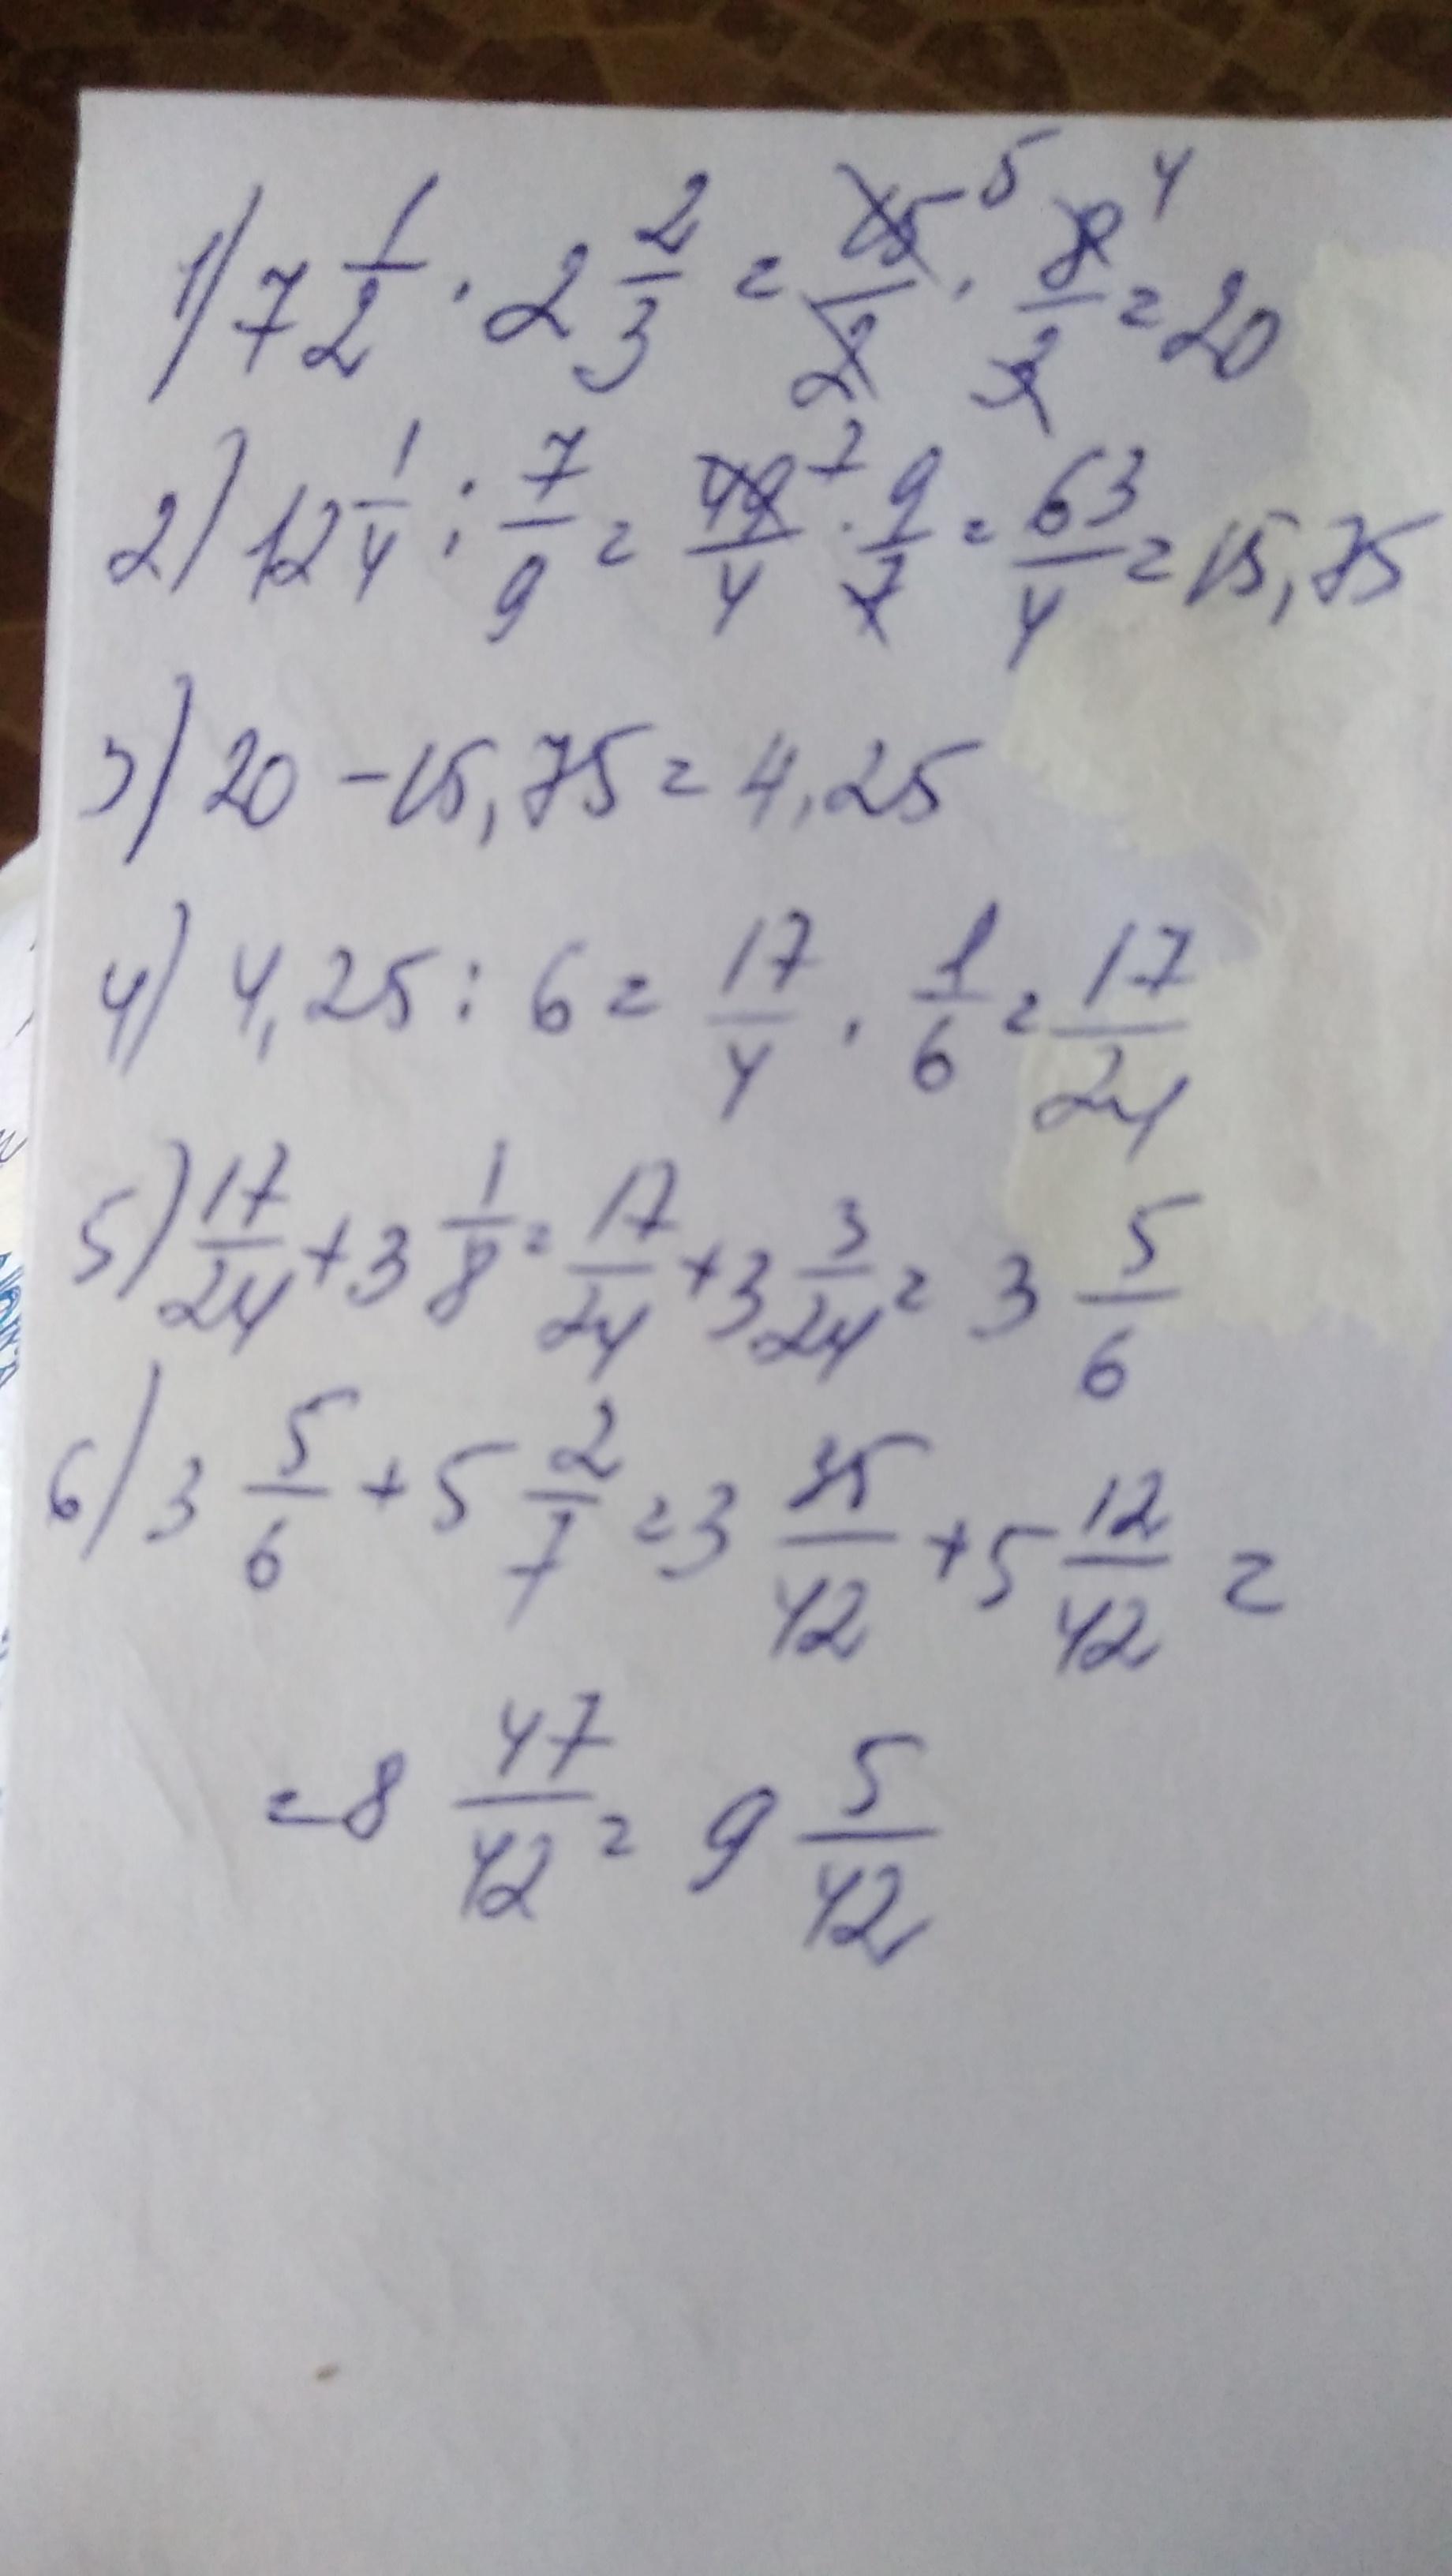 1) 7 1/2 · 2 2/3 = 15/2 5 · 8/3 4 = 20
2) 12 1/4 : 7/9 = 49/4 7 · 9/7 = 63/4 = 15,75
3) 20 - 15,75 = 4,25
4) 4,25 : 6 = 17/4 · 1/6 = 17/24
5) 17/24 + 3 1/8 = 17/24 + 3 3/24 = 3 5/6
6) 3 5/6 + 5 2/7 = 3 35/42 + 5 12/42 =
= 8 47/42 = 9 5/42